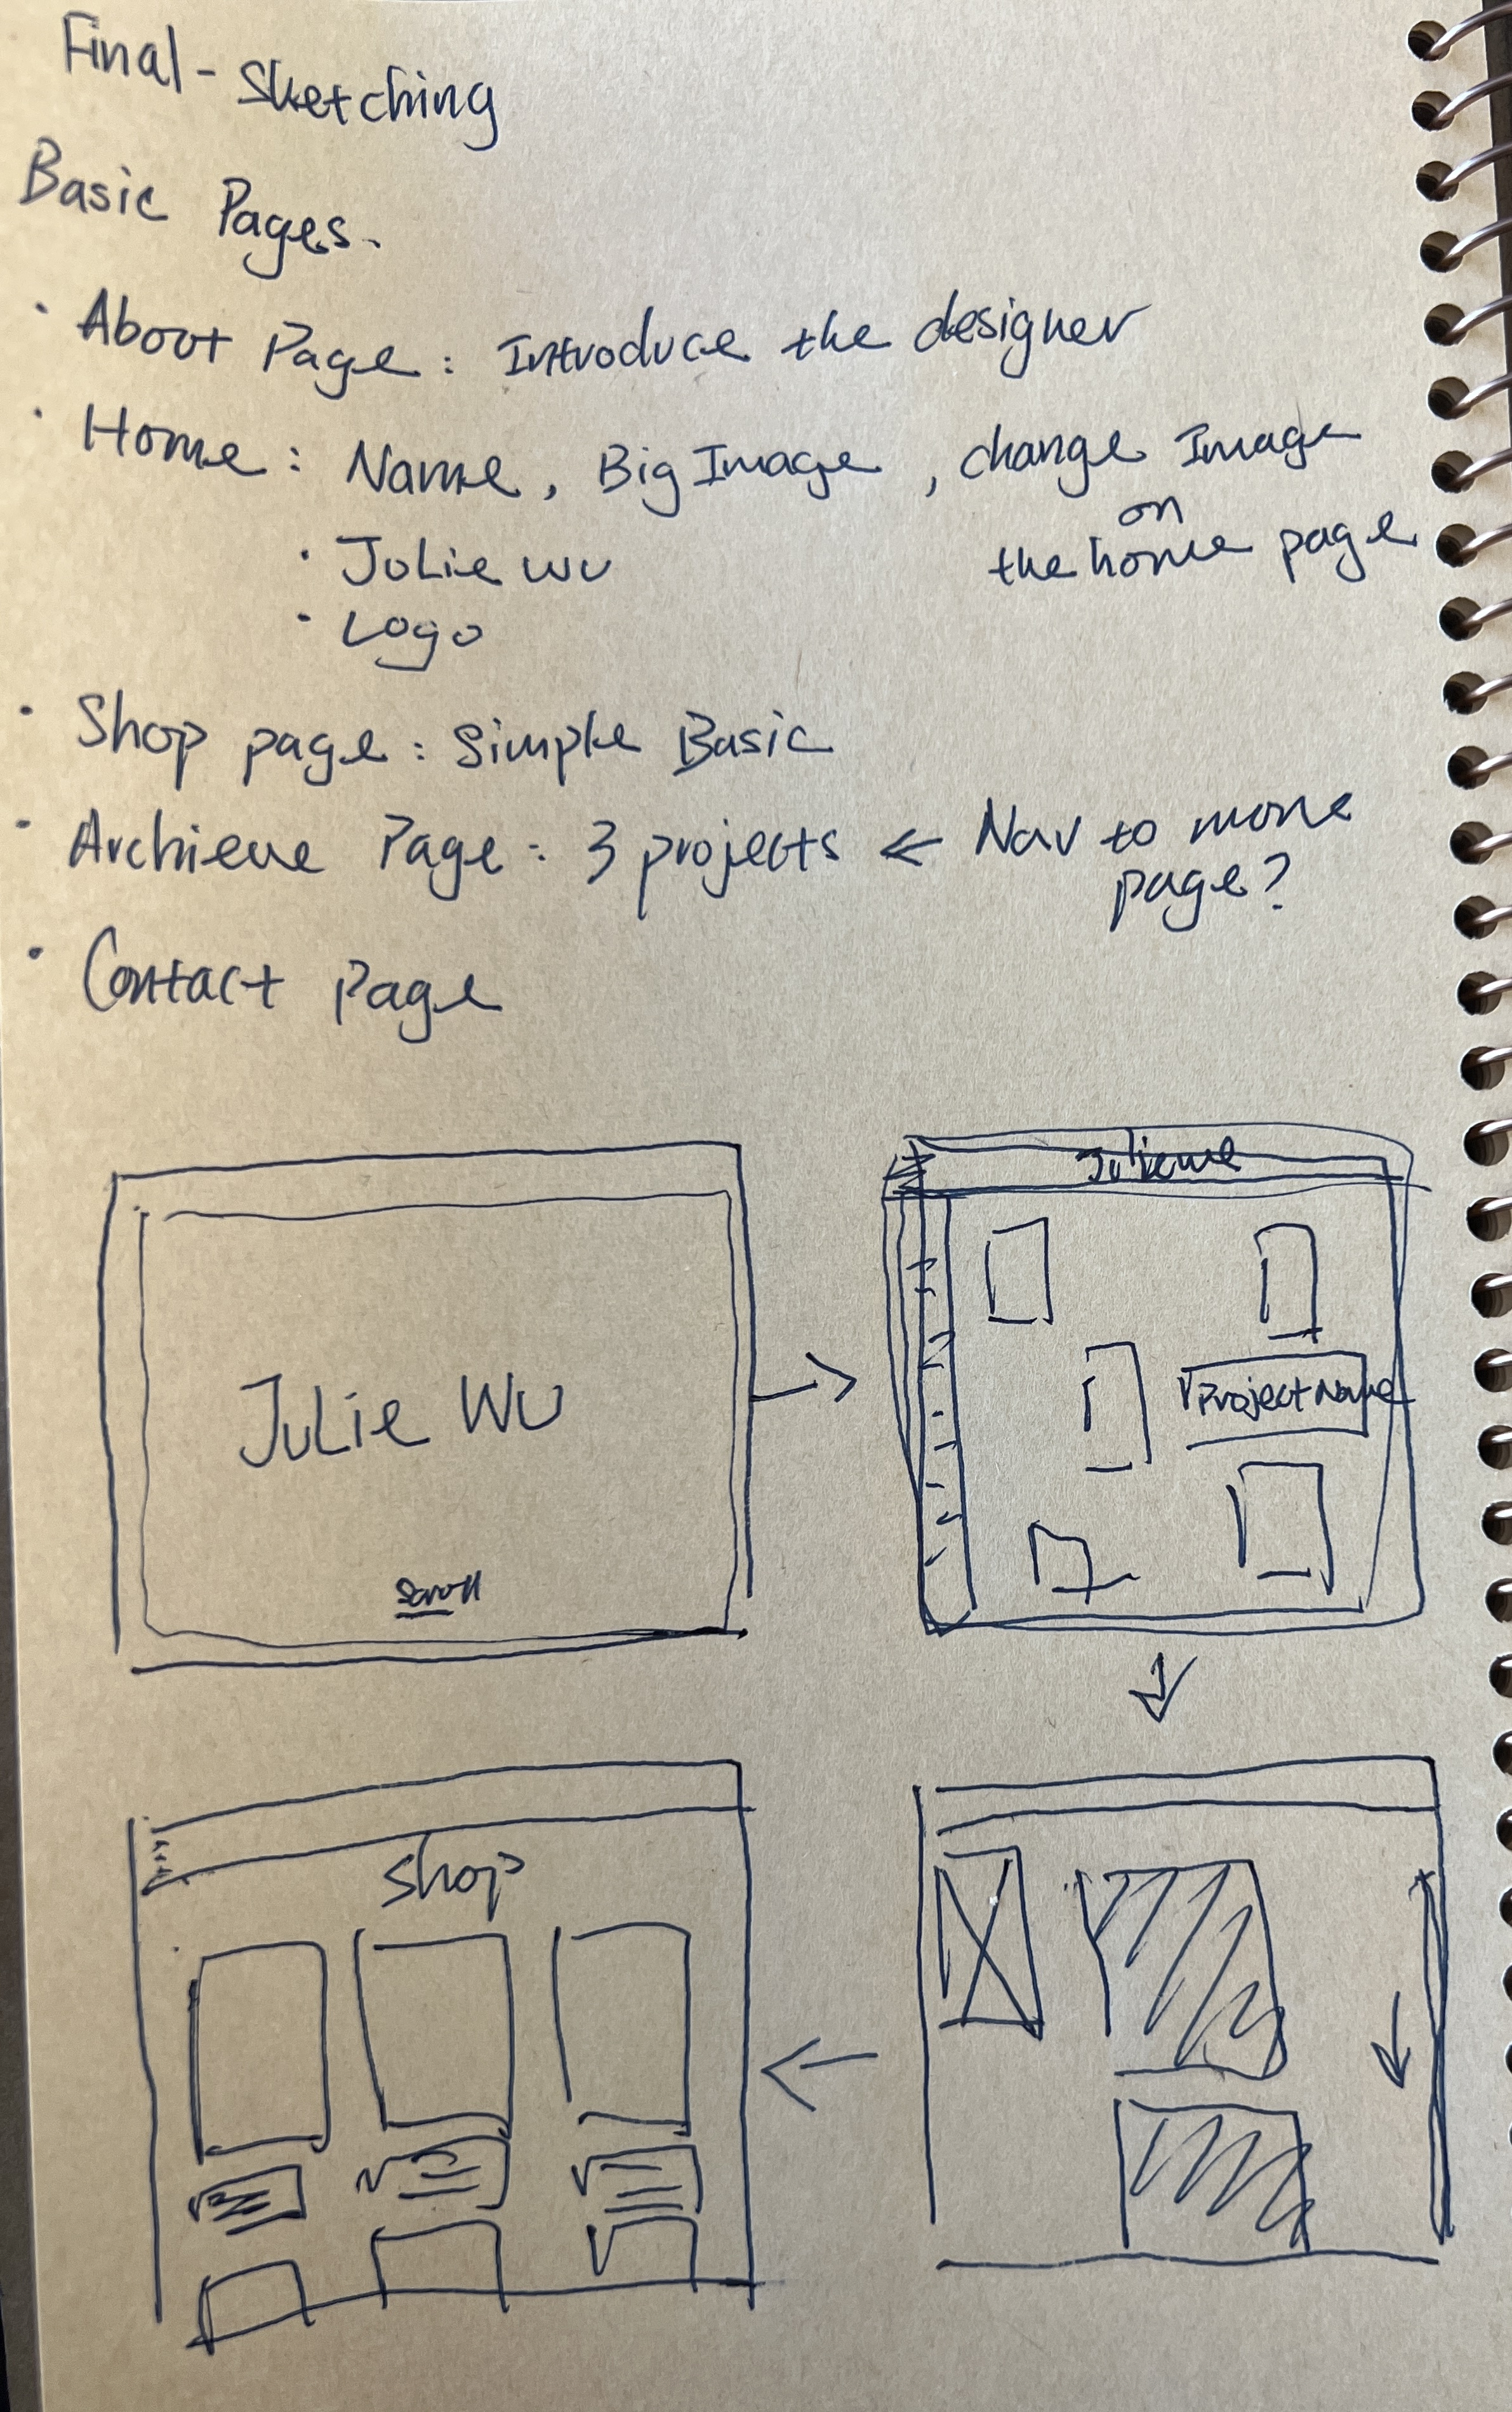 Final - Sketching
Basic Pages.
· About Page : Introduce the designer
· Home : Name, Big Image, change Image
on
the home page
· Julie wu
· Logo
· Shop page : Simple Basic
· Archieve Page : 3 projects ← Nav to more
page?
· Contact Page
Julie Wu
Scroll
Julie wu
Project Name
Shop